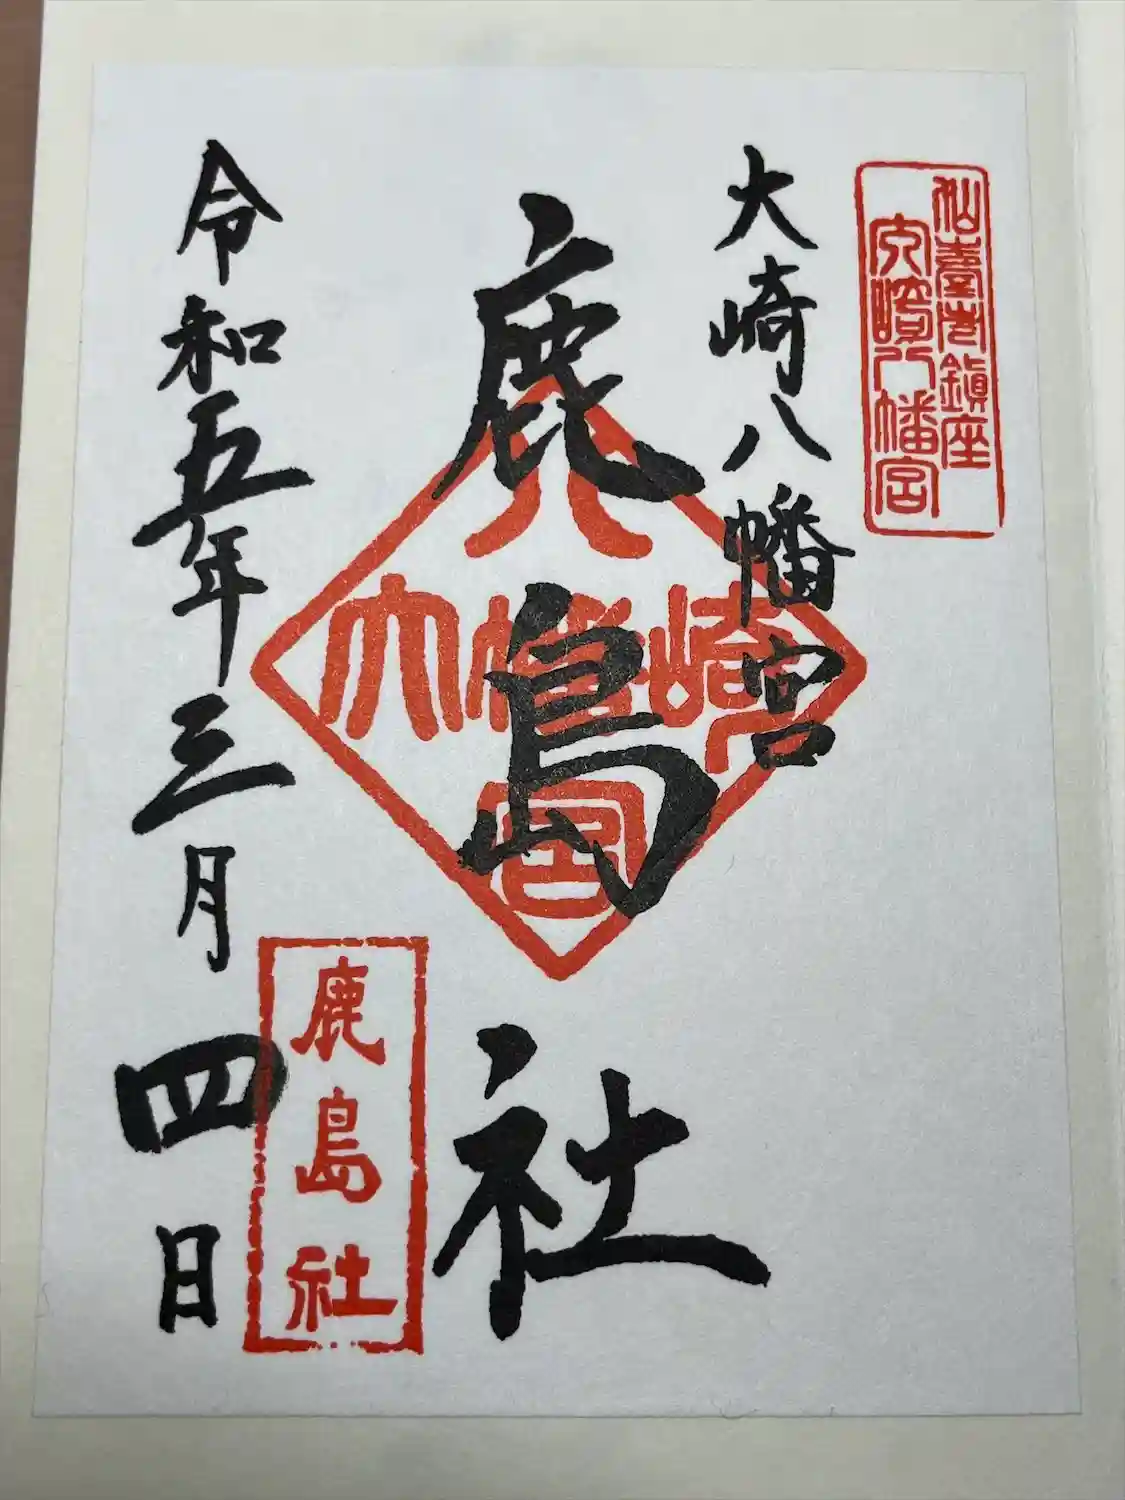 仙臺市鎮座
大崎八幡宮
大崎八幡宮
鹿島社
八
大幡崎
宮
鹿島社
令和五年三月四日